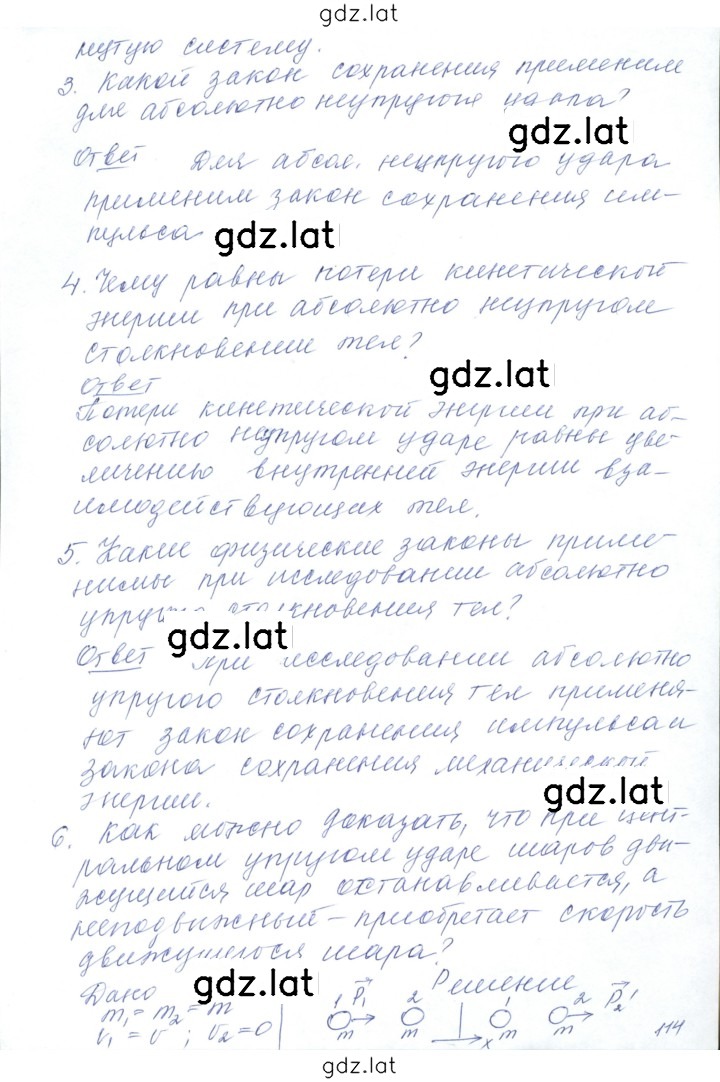 gdz.lat
мутую систему.
3. Какой закон сохранения применим
для абсолютно неупругого удара?
gdz.lat
Ответ Для абсол. неупругого удара
применим закон сохранения им-
пульса
gdz.lat
4. Чему равны потери кинетической
энергии при абсолютно неупругом
столкновении тел?
gdz.lat
Ответ
Потери кинетической энергии при аб-
солютно неупругом ударе равны уве-
личению внутренней энергии вза-
имодействующих тел.
5. Какие физические законы приме-
нимы при исследовании абсолютно
упругого столкновения тел?
gdz.lat
Ответ При исследовании абсолютно
упругого столкновения тел применя-
ют закон сохранения импульса и
закона сохранения механической
энергии.
gdz.lat
6. Как можно доказать, что при цент-
ральном упругом ударе шаров дви-
жущийся шар останавливается, а
неподвижный – приобретает скорость
движущегося шара?
gdz.lat
Дано Решение
m₁ = m₂ = m
v₁ = v ; v₂ = 0
1 P₁ 2 1 2 P₂'
m m x m m
114
gdz.lat